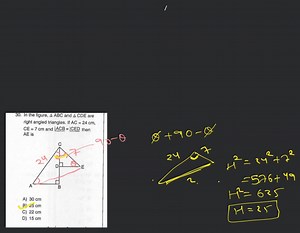 30. In the figure, Δ ABC and Δ CDE are
right angled triangles. If AC = 24 cm,
CE = 7 cm and ∠ACB = ∠CED then
AE is
C
7
90-θ
24
D
E
A
B
A) 30 cm
B) 25 cm
C) 22 cm
D) 15 cm
θ+90-θ
24
7
2
H² = 24²+7²
=576+49
H² = 625
H=25